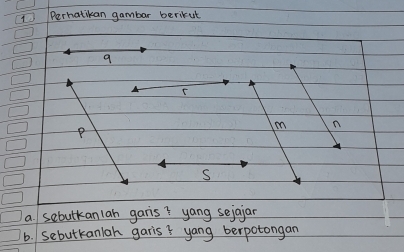 1. Perhatikan gambar berikut
q
r
p
m
n
S
a. sebutkanlah garis² yang sejajar
b. sebutkanlah garis² yang berpotongan